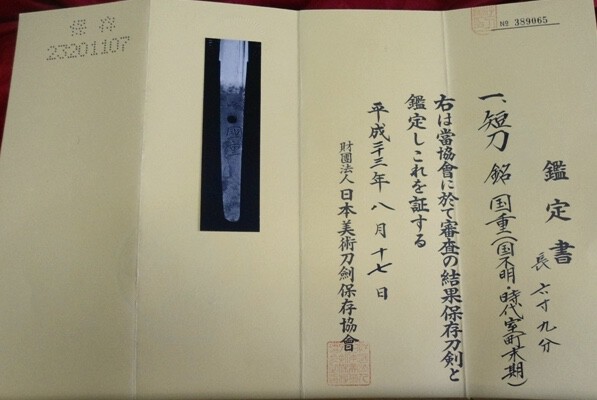 No 389065
鑑定書
一、短刀 銘 国重(国不明・時代室町末期)
長 六寸九分
右は當協會に於て審査の結果保存刀剣と
鑑定しこれを証する
平成二十三年八月十七日
財團法人 日本美術刀劍保存協會
保存
23201107